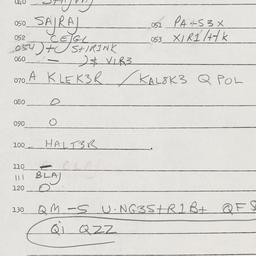 050 SAJRAJ 051 PA+S3X
052 CEJGL 053 XIR1/+/K
054 S+IRINK
060 — VIR3
070 A KLEK3R / KAL8K3 Q POL
080 O
090 O
100 HALT3R .
110 —
111 BLAJ
120 O
130 QM -S U·NG3S+R1B+ QF8
Qi QZZ